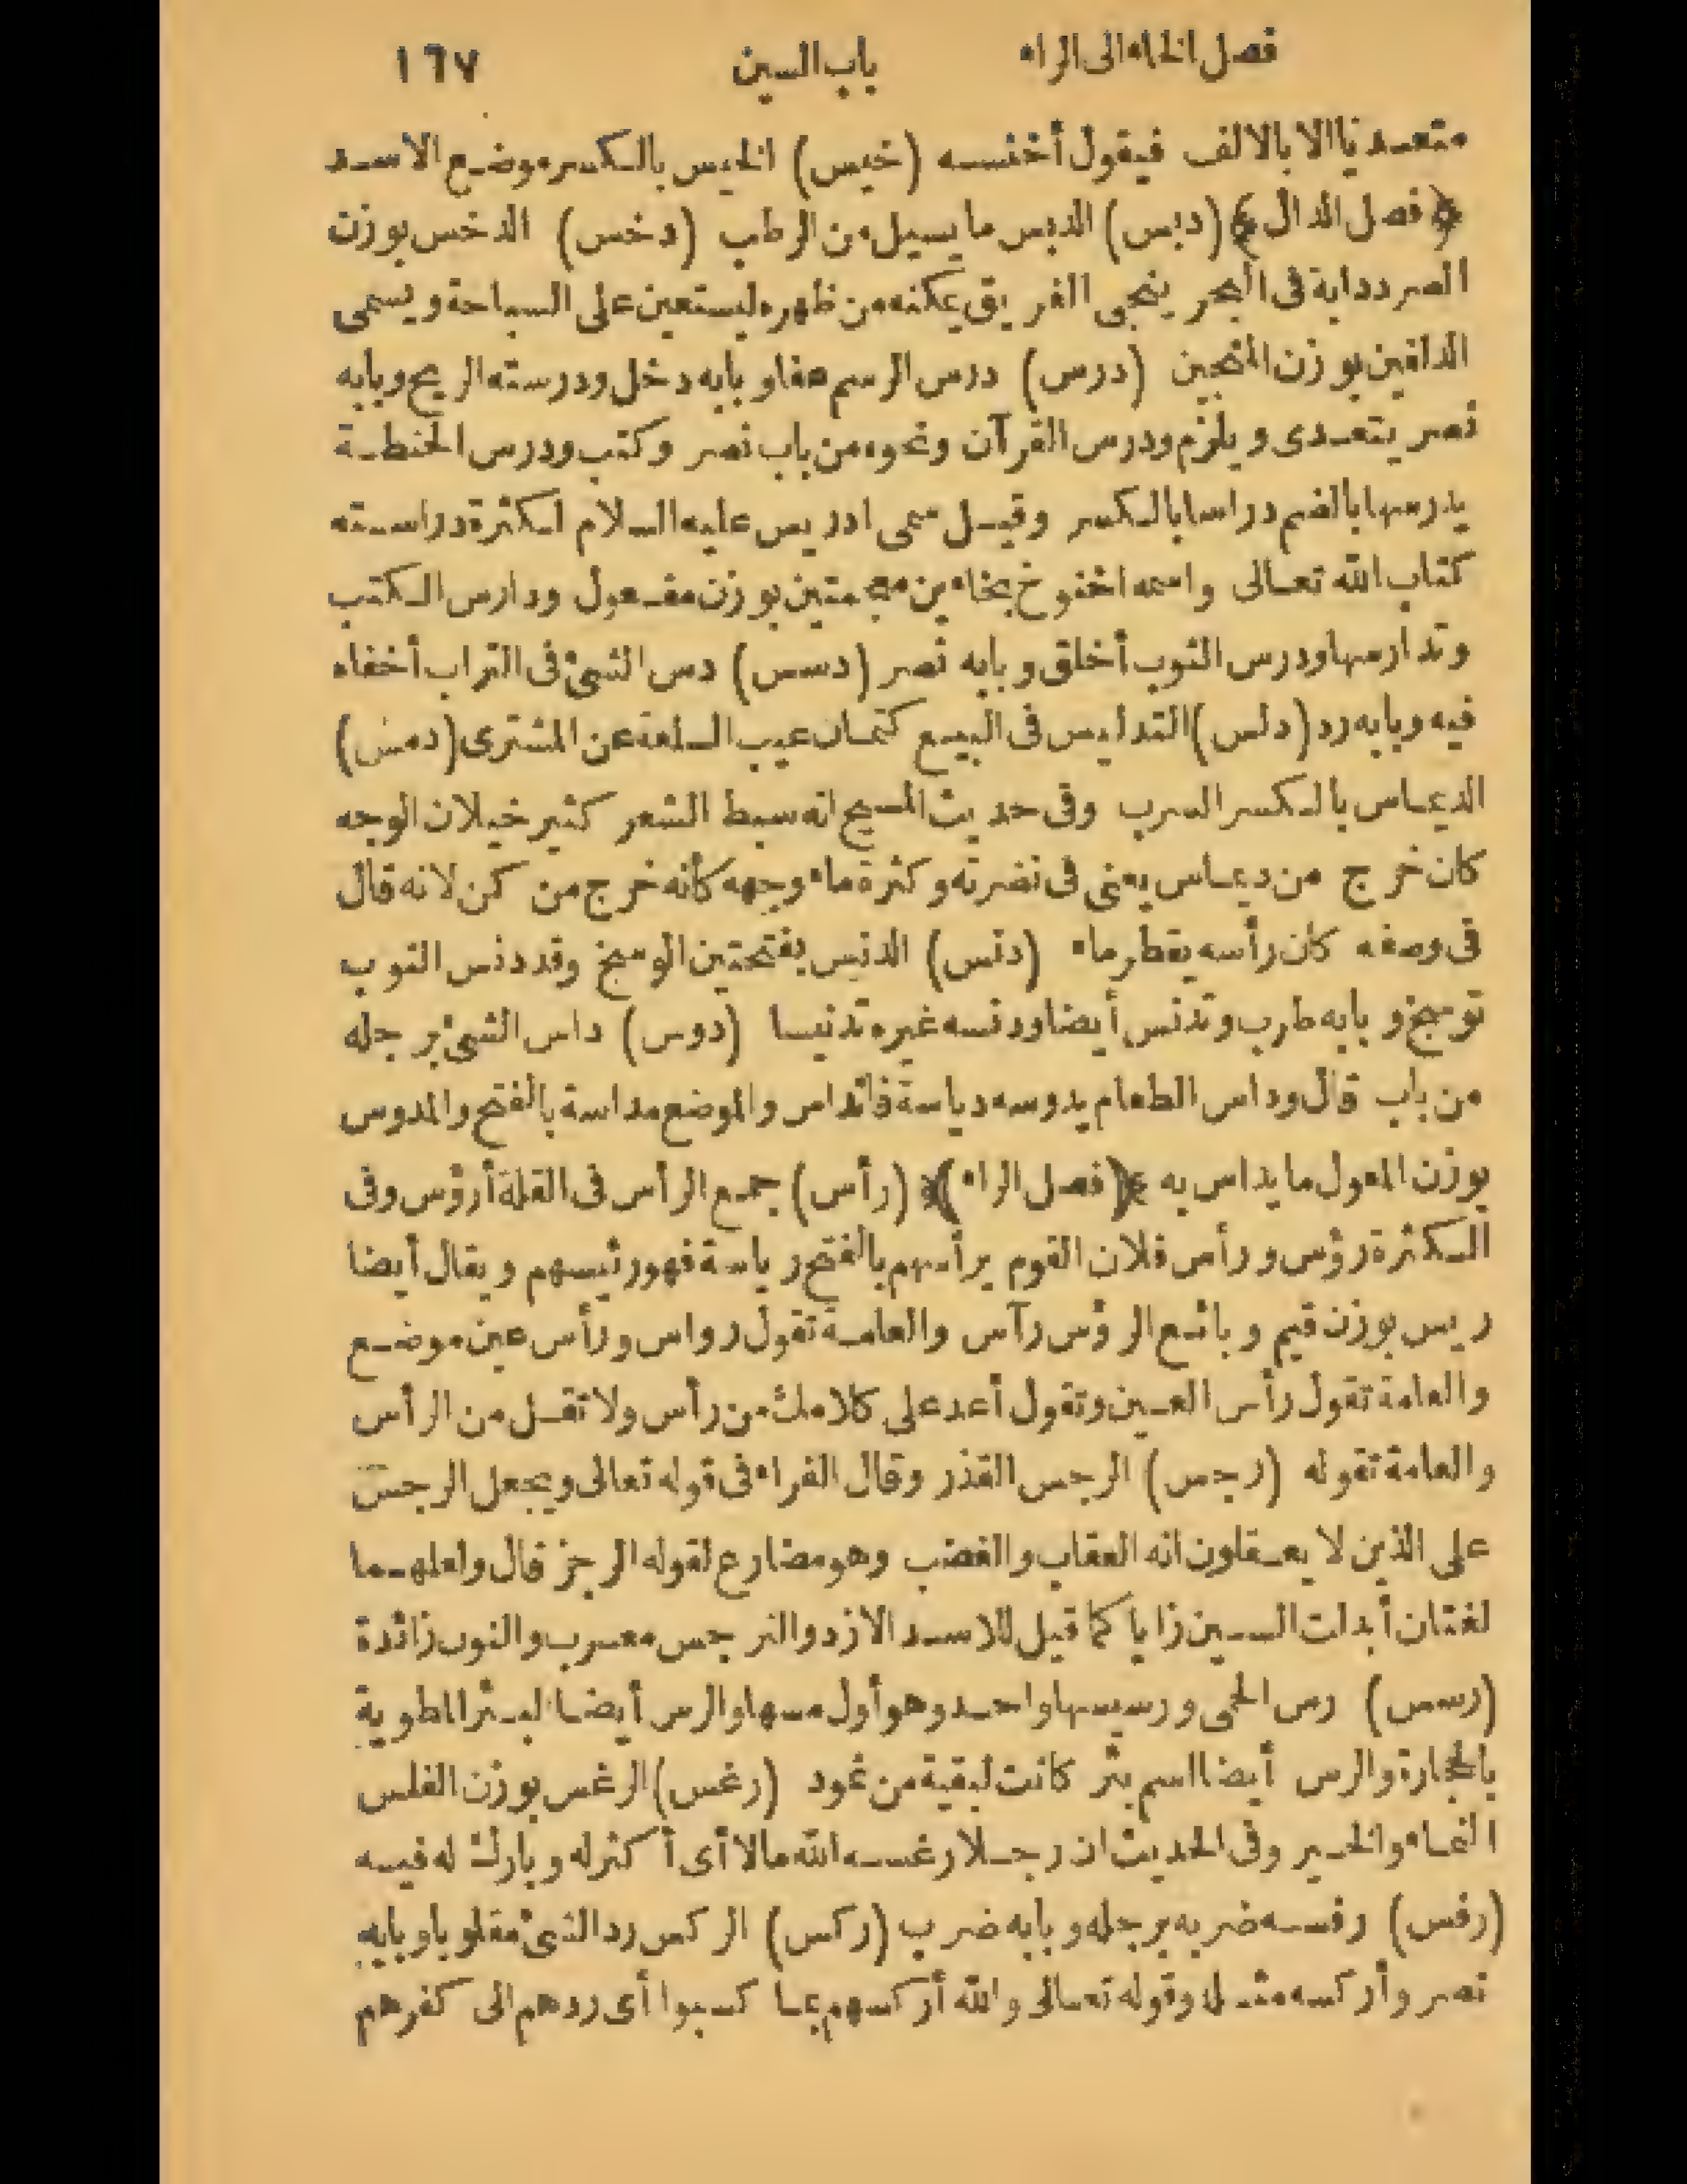 فصل الخاء الى الراء باب السين ١٦٧
متعديا الا بالالف فيقول أخنسه (خيس) الخيس بالكسر موضع الاسد
﴿فصل الدال﴾ (دبس) الدبس ما يسيل من الرطب (دخس) الدخس بوزن
الصرد دابة فى البحر ينجى الغريق يمكنه من ظهره ليستعين على السباحة ويسمى
الدلفين بوزن المنجين (درس) درس الرسم عفا وبابه دخل ودرسته الريح وبابه
نصر يتعدى ويلزم ودرس القرآن ونحوه من باب نصر وكتب ودرس الحنطة
يدرسها بالضم دراسا بالكسر وقيل سمى ادريس عليه السلام لكثرة دراسته
كتاب الله تعالى واسمه اخنوخ بخاءين معجمتين بوزن مفعول ودارس الكتب
وتدارسها ودرس الثوب أخلق وبابه نصر (دسس) دس الشئ فى التراب أخفاه
فيه وبابه رد (دلس) التدليس فى البيع كتمان عيب السلعة عن المشترى (دمس)
الديماس بالكسر السرب وفى حديث المسيح انه سبط الشعر كثير خيلان الوجه
كان خرج من ديماس يعنى فى نضرته وكثرة ماء وجهه كأنه خرج من كن لانه قال
فى وصفه كان رأسه يقطر ماء (دنس) الدنس بفتحتين الوسخ وقد دنس الثوب
توسخ وبابه طرب وتدنس أيضا ودنسه غيره تدنيسا (دوس) داس الشئ برجله
من باب قال وداس الطعام يدوسه دياسة فانداس والموضع مداسة بالفتح والمدوس
بوزن المعول ما يداس به ﴿فصل الراء﴾ (رأس) جمع الرأس فى القلة أرؤس وفى
الكثرة رؤس ورأس فلان القوم يرأسهم بالفتح رياسة فهو رئيسهم ويقال أيضا
ريس بوزن قيم وبائع الرؤس رآس والعامة تقول رواس ورأس عين موضع
والعامة تقول رأس العين وتقول أعد على كلامك من رأس ولا تقل من الرأس
والعامة تقوله (رجس) الرجس القذر وقال الفراء فى قوله تعالى ويجعل الرجس
على الذين لا يعقلون انه العقاب والغضب وهو مضارع لقوله الرجز قال ولعلهما
لغتان أبدلت السين زايا كما قيل للاسد الازد والنرجس معرب والنون زائدة
(رسس) رس الحمى ورسيسها واحد وهو أول مسها والرس أيضا البئر المطوية
بالحجارة والرس أيضا اسم بئر كانت لبقية من ثمود (رغس) الرغس بوزن الفلس
النماء والخير وفى الحديث ان رجلا رغسه الله مالا أى أكثر له وبارك له فيه
(رفس) رفسه ضربه برجله وبابه ضرب (ركس) الركس رد الشئ مقلوبا وبابه
نصر وأركسه مثله وقوله تعالى والله أركسهم بما كسبوا أى ردهم الى كفرهم